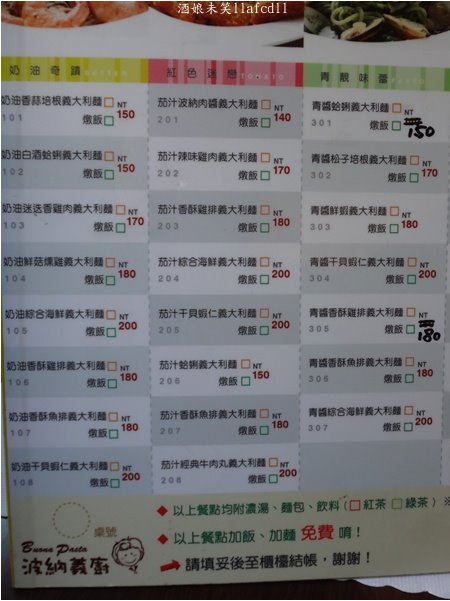 酒娘未笑11afcd11
奶油奇蹟 BUTTER
奶油香蒜培根義大利麵 NT 150
101 燉飯
奶油白酒蛤蜊義大利麵 NT 150
102 燉飯
奶油迷迭香雞肉義大利麵 NT 170
103 燉飯
奶油鮮菇燻雞義大利麵 NT 180
104 燉飯
奶油綜合海鮮義大利麵 NT 200
105 燉飯
奶油香酥雞排義大利麵 NT 180
106 燉飯
奶油香酥魚排義大利麵 NT 180
107 燉飯
奶油干貝蝦仁義大利麵 NT 200
108 燉飯
紅色迷戀 TOMATO
茄汁波納肉醬義大利麵 NT 140
201 燉飯
茄汁辣味雞肉義大利麵 NT 170
202 燉飯
茄汁香酥雞排義大利麵 NT 180
203 燉飯
茄汁綜合海鮮義大利麵 NT 200
204 燉飯
茄汁干貝蝦仁義大利麵 NT 200
205 燉飯
茄汁蛤蜊義大利麵 NT 150
206 燉飯
茄汁香酥魚排義大利麵 NT 180
207 燉飯
茄汁經典牛肉丸義大利麵 NT 200
208 燉飯
青靚味蕾
青醬蛤蜊義大利麵 NT 150
301 燉飯
青醬松子培根義大利麵 NT 170
302 燉飯
青醬鮮蝦義大利麵 NT 180
303 燉飯
青醬干貝蝦仁義大利麵 NT 200
304 燉飯
青醬香酥雞排義大利麵 NT 180
305 燉飯
青醬香酥魚排義大利麵 NT 180
306 燉飯
青醬綜合海鮮義大利麵 NT 200
307 燉飯
桌號
Buona Pasta
波納義廚
◆ 以上餐點均附濃湯、麵包、飲料(□紅茶□綠茶) ※
◆ 以上餐點加飯、加麵 免費 唷!
➔ 請填妥後至櫃檯結帳,謝謝!